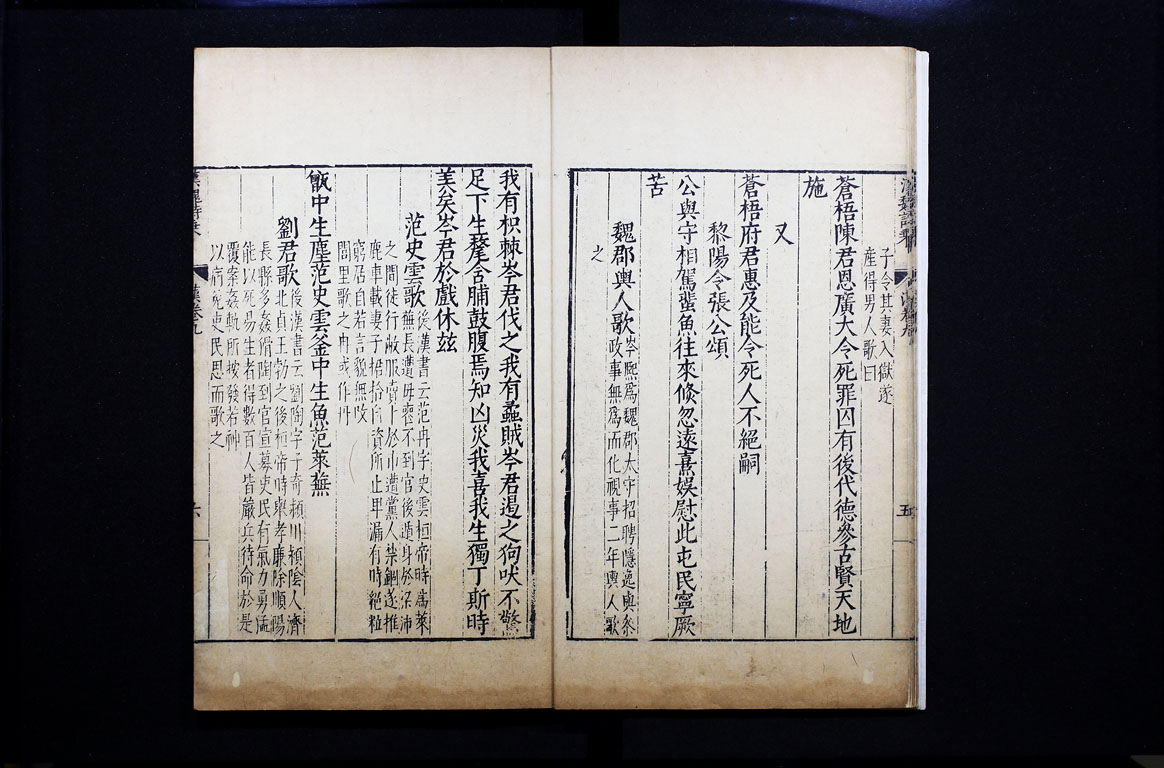 子令其妻入獄遂
産得男人歌曰
蒼梧陳君恩廣大令死罪囚有後代德參古賢天地
施
又
蒼梧府君惠及能令死人不絕嗣
黎陽令張公頌
公與守相駕蜚魚往來倏忽遠熹娛慰此屯民寧厥
苦
魏郡輿人歌岑熙爲魏郡太守招聘隱逸與參
政事無爲而化視事二年輿人歌
之
五
我有枳棘岑君伐之我有蟊賊岑君遏之狗吠不驚
足下生氂含脯鼓腹焉知凶災我喜我生獨丁斯時
美矣岑君於戲休玆
范史雲歌後漢書云范冉字史雲桓帝時爲萊
蕪長遭母喪不到官後遁身於梁沛
之間徒行敝服賣卜於市遭黨人禁錮遂推
鹿車載妻子捃拾自資所止單漏有時絕粒
窮居自若言貌無改
閭里歌之冉或作丹
甑中生塵范史雲釜中生魚范萊蕪
劉君歌後漢書云劉陶字子奇潁川潁陰人濟
北貞王勃之後桓帝時舉孝廉除順陽
長縣多姦猾陶到官宣募吏民有氣力勇猛
能以死易生者得數百人皆嚴兵待命於是
覆案姦軌所按發若神
以病免吏民思而歌之
漢卷九
六